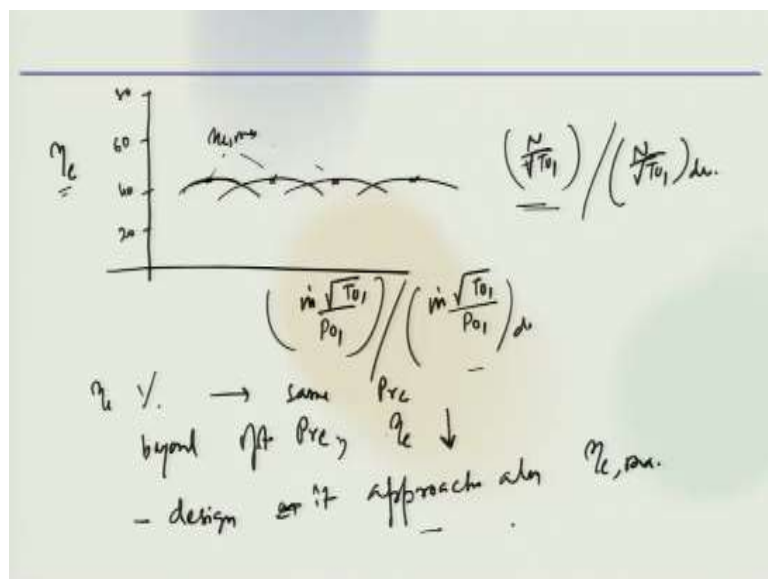 80
60
η_c
40
20
η_c,max
(N/√T01)/(N/√T01)de.
(ṁ√T01/P01)/(ṁ√T01/P01)d
η_c % → same Prc
beyond opt Prc, η_c ↓
- design it approach η_c,max.